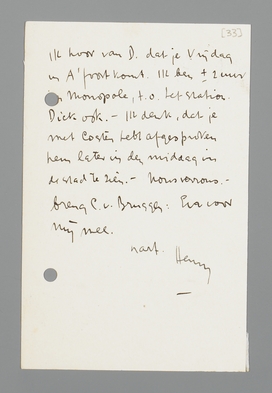 [33]
Ik hoor van D. dat je Vrijdag
in A'foort komt. Ik ben ± 2 uur
in Monopole, t.o. het station.
Dick ook. – Ik denk, dat je
met Coster hebt afgesproken
hem later in den middag in
de stad te zien. – Nous verrons. –
Breng C. v. Bruggen: Eva voor
mij mee.
hart.
Henny